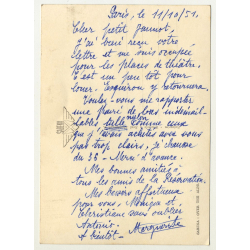 Paris, le 11/10/51.
Cher petit Jeannot.
J'ai bien reçu votre
lettre et me suis occupée
pour les places de théâtre.
C'est un peu tôt pour
louer. y retournera.
Voulez-vous me rapporter
une paire de bas
tulle nylon comme ceux
que j'avais achetés avec vous
pas trop clairs, je chausse
du 38 - Merci d'avance.
Mes bonnes amitiés à
tous les amis de la Réservation.
Mes baisers affectueux
pour vous, Monique et
Christiane sans oublier
Antoine.
A bientôt - Marguerite